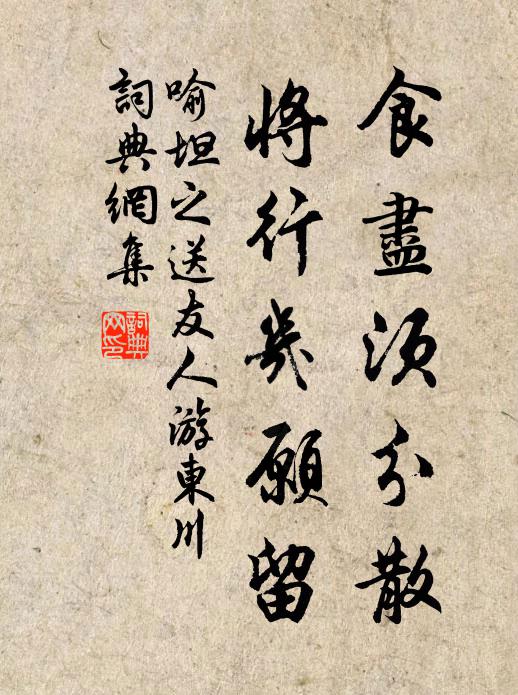 食盡須分散
將行幾願留
喻坦之送友人游東川
詞典網集
詞典網印